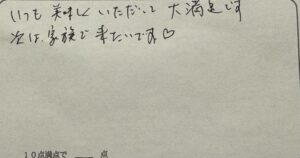 いつも美味しくいただいて大満足です
次は、家族で来たいです♡
10点満点で＿＿＿点